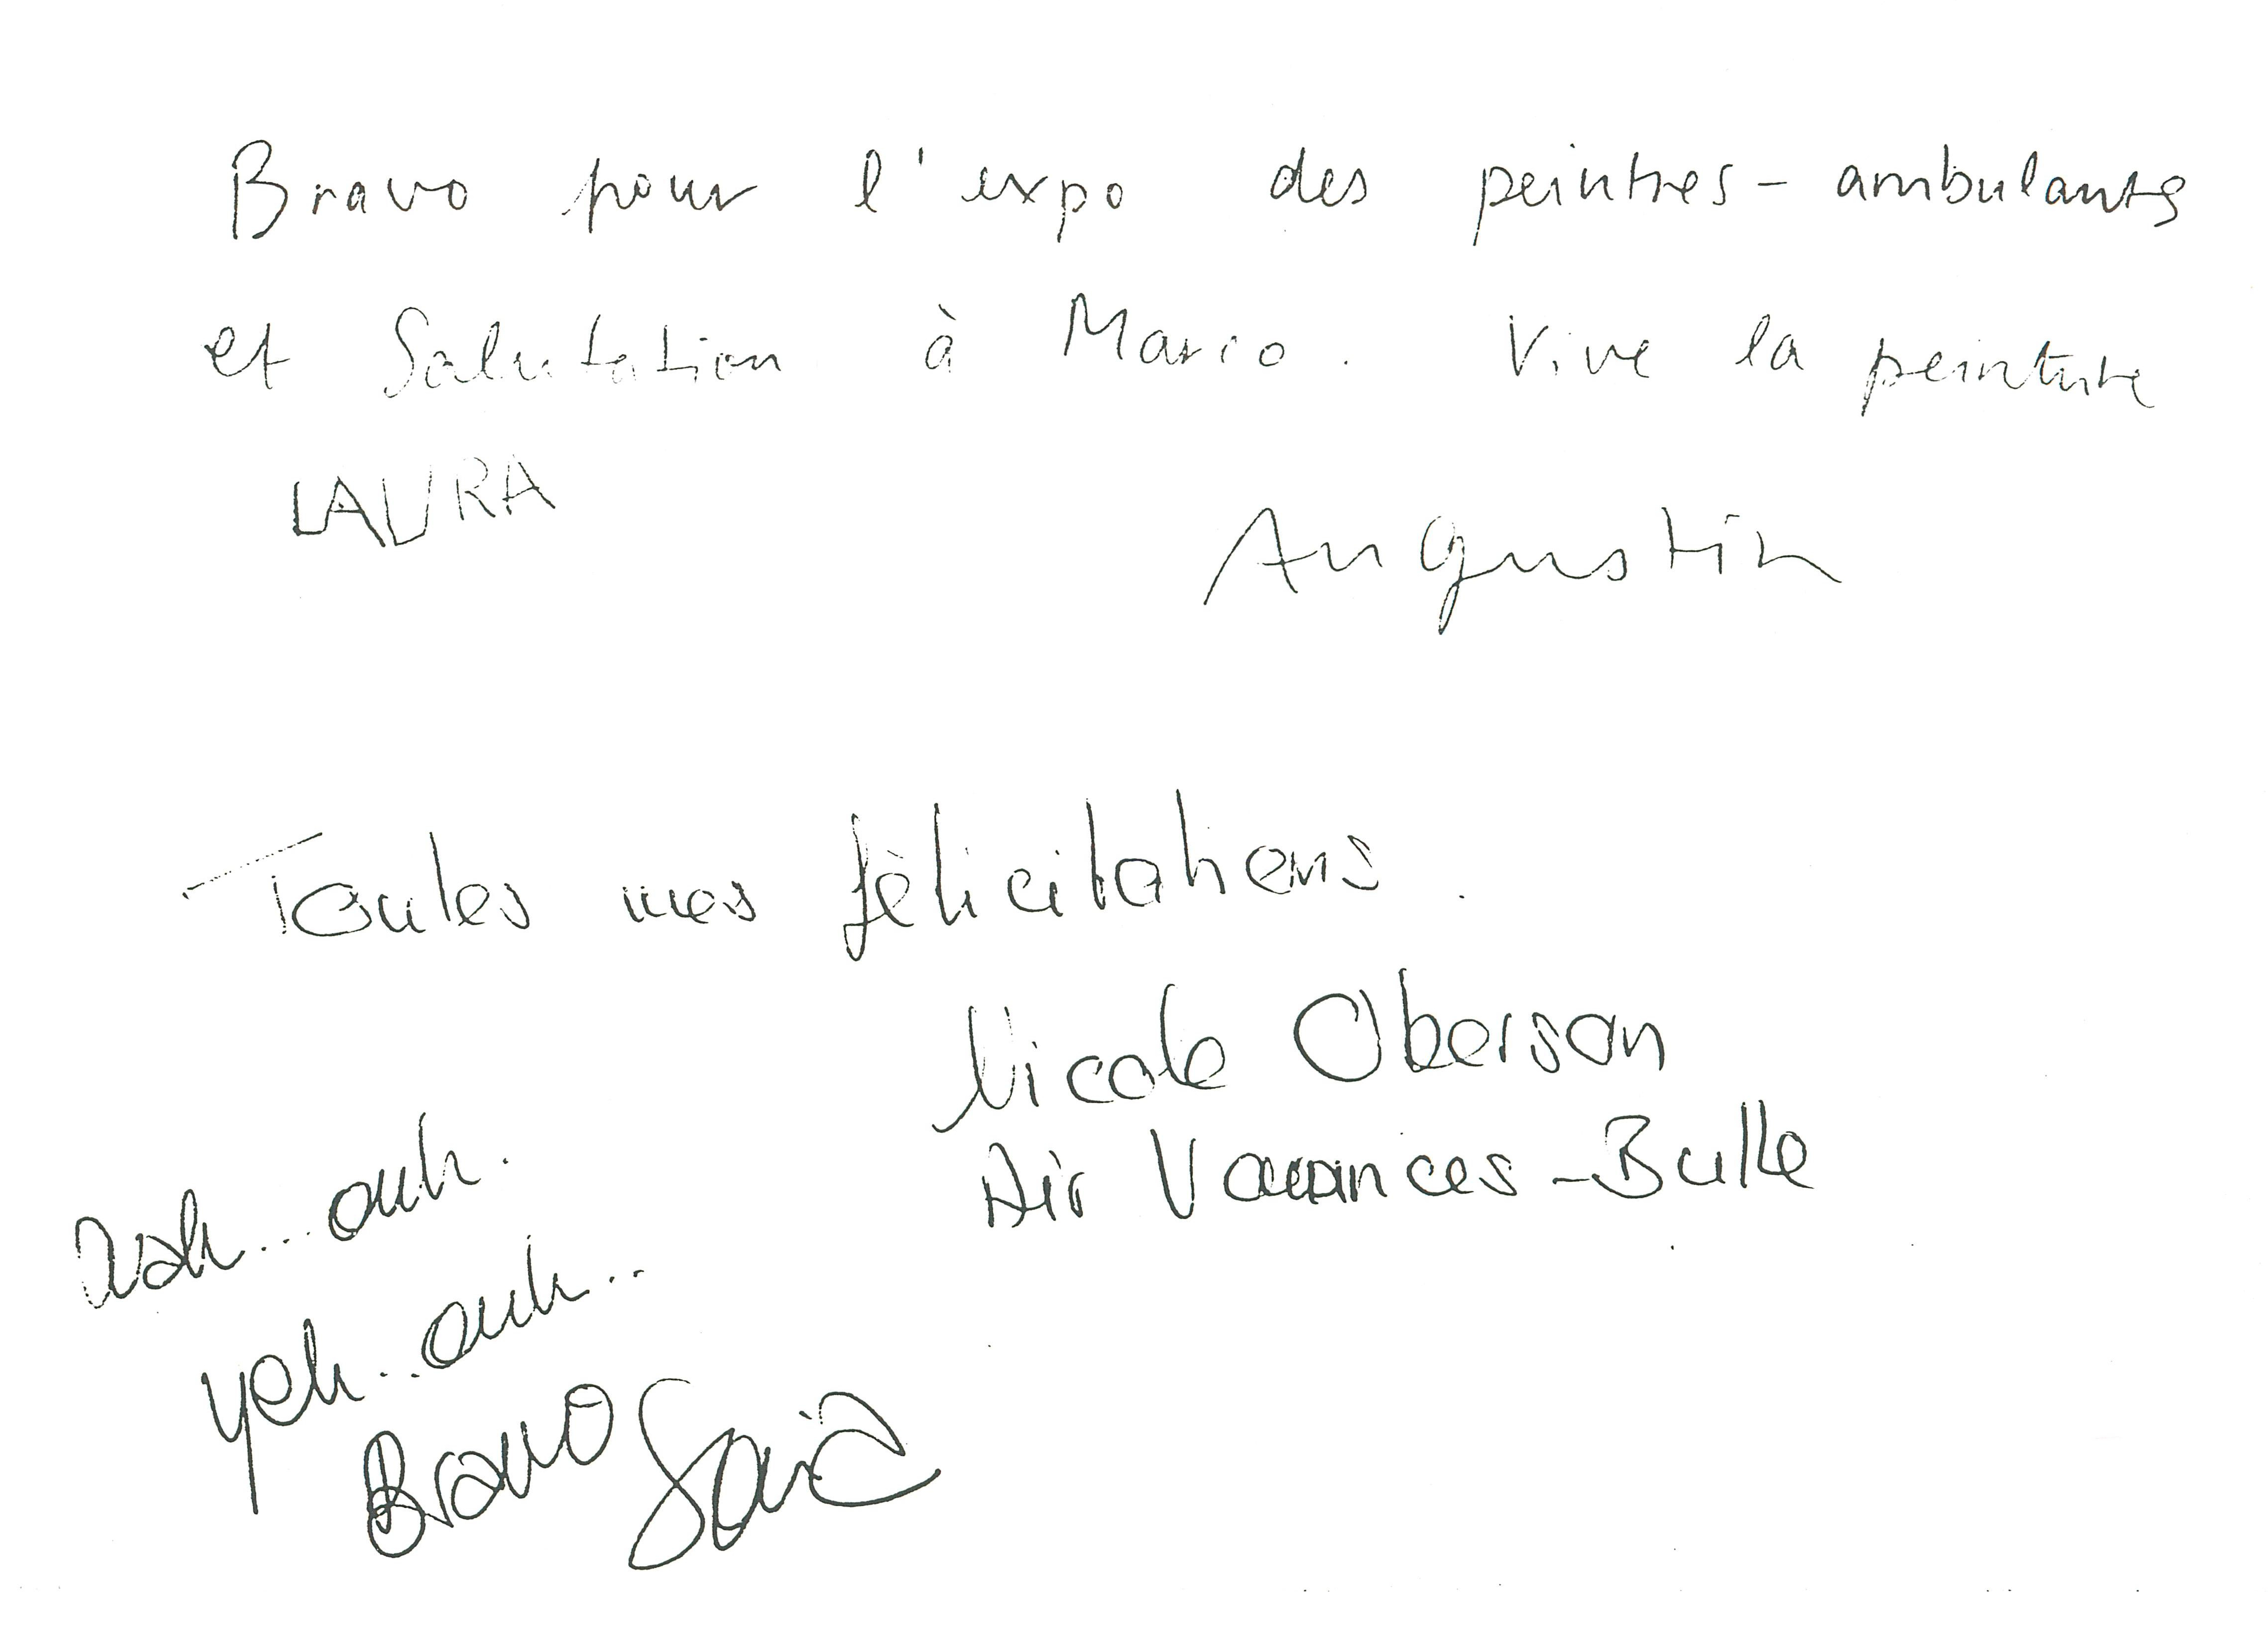 Bravo pour l'expo des peintres - ambulants
et Salutation à Mario. Vive la peinture
LAURA
Augustin
Toutes mes félicitations.
Nicole Oberson
Air Vacances - Bulle
ouh.
yeh...ouh...
Bravo